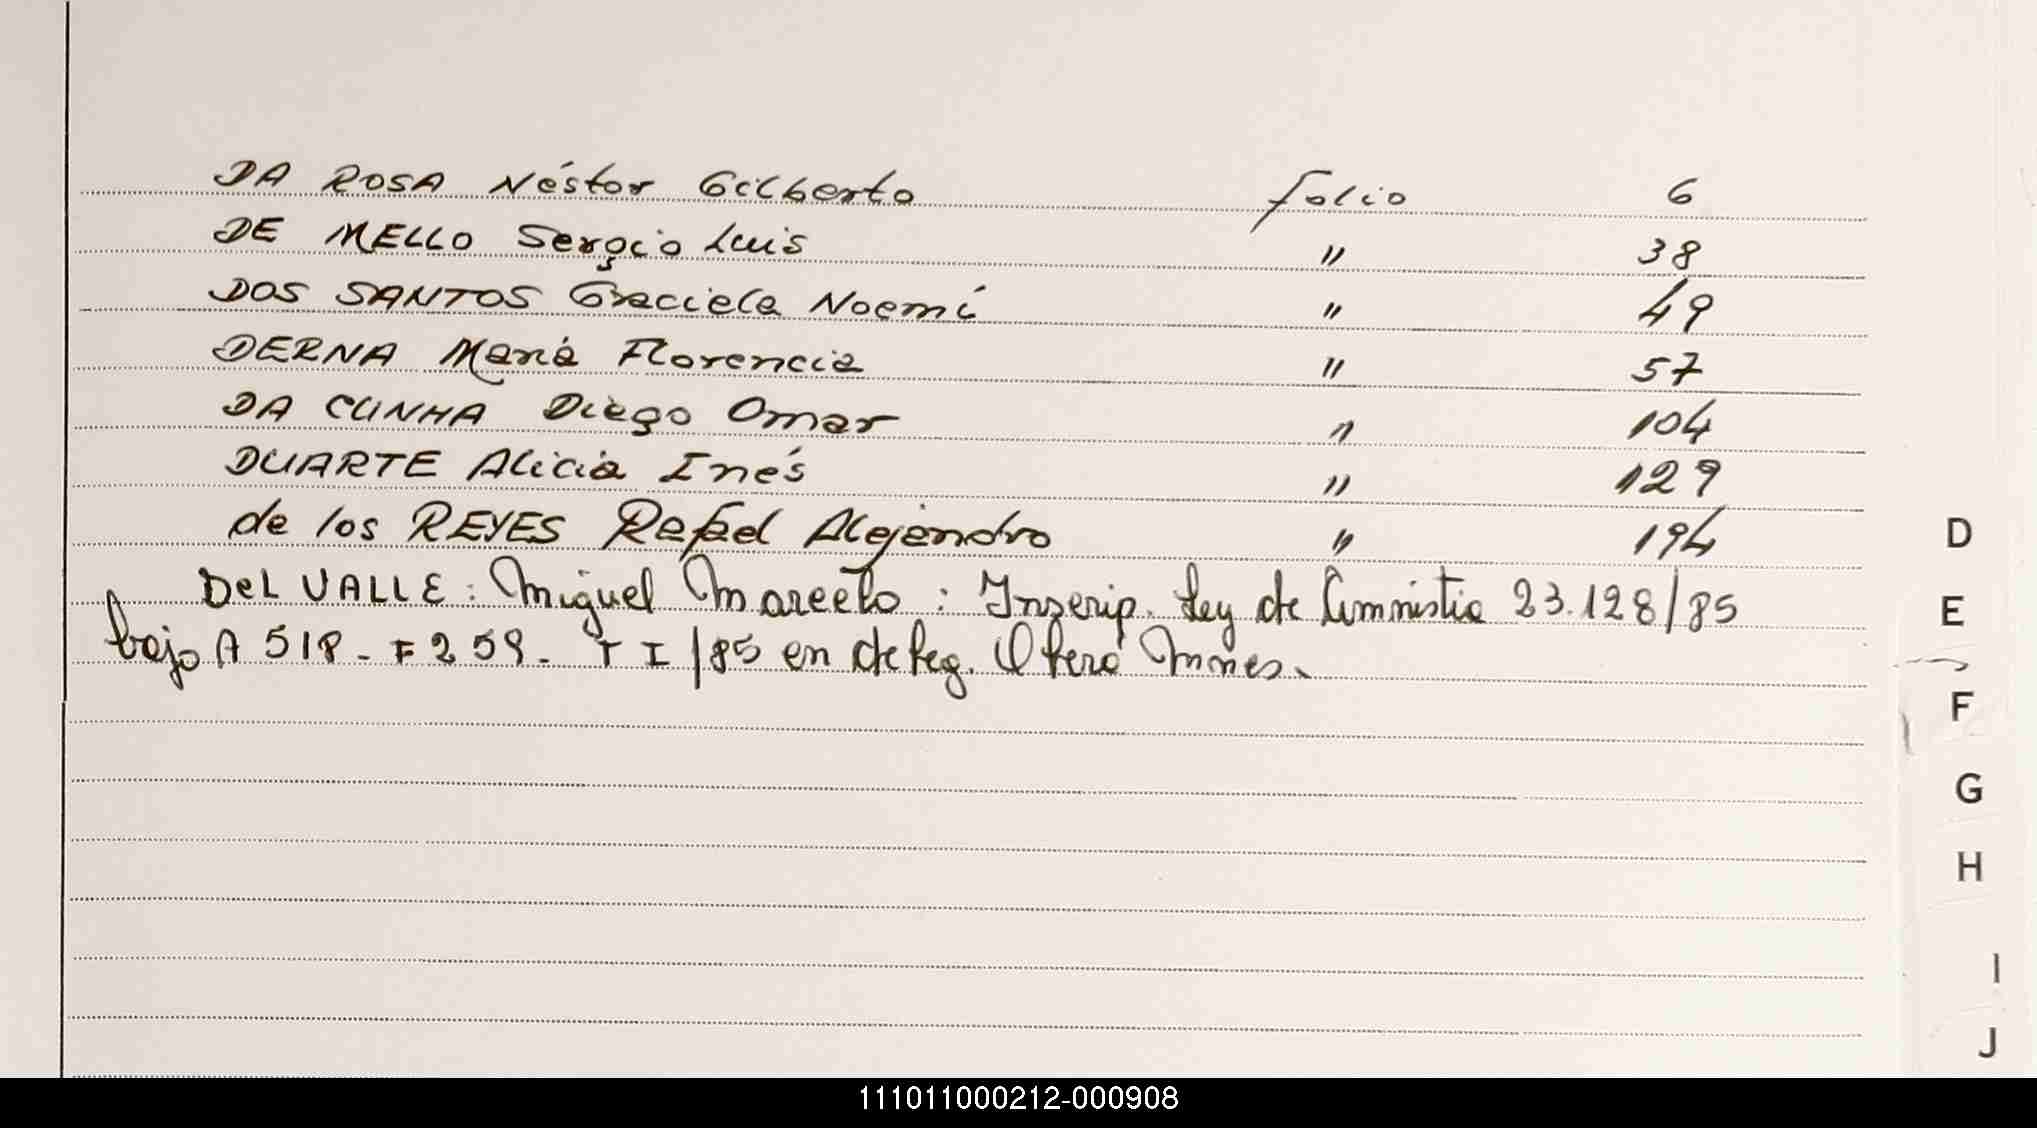 DA ROSA Néstor Gilberto folio 6
DE MELLO Sergio Luis " 38
DOS SANTOS Graciela Noemí " 49
DERNA María Florencia " 57
DA CUNHA Diego Omar " 104
DUARTE Alicia Inés " 129
de los REYES Rafael Alejandro " 194
DeL VALLE: Miguel Marcelo: Inscrip. Ley de Amnistia 23.128/85
bajo A 518 - F 259 - T I/85 en de Leg.
D
E
F
G
H
I
J
111011000212-000908